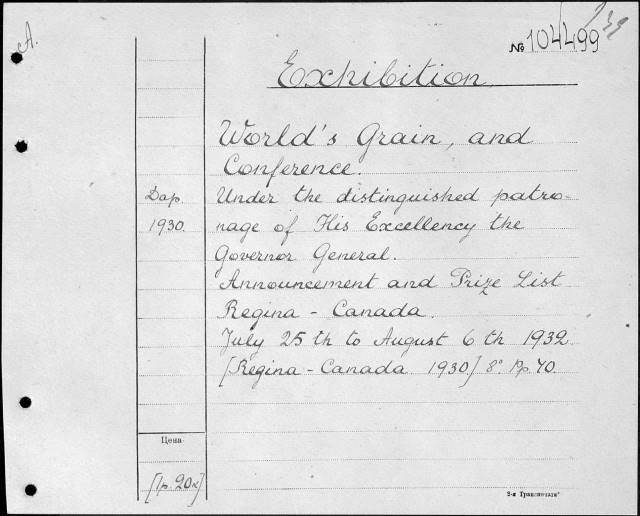 A.
№ 104499
Exhibition
World's Grain, and
Conference.
Дар. Under the distinguished patro-
1930. nage of His Excellency the
Governor General.
Announcement and Prize List
Regina - Canada.
July 25 th to August 6 th 1932
[Regina - Canada 1930] 8° Pp. 40.
Цена
[1р. 20к]